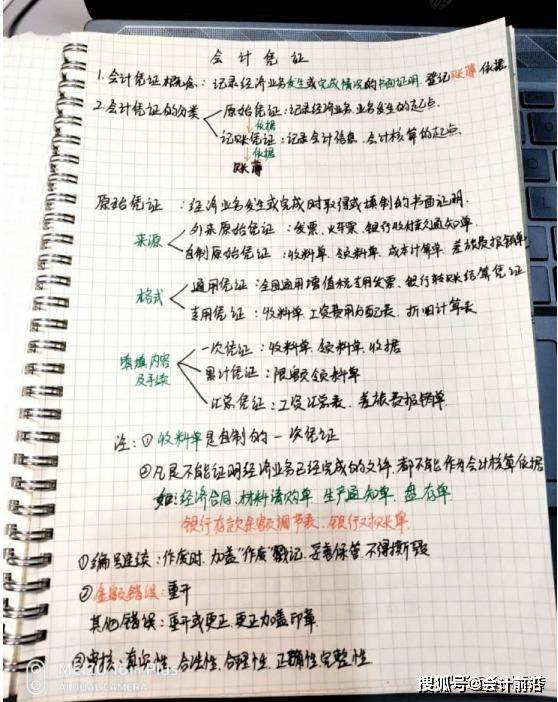 会计凭证
1.会计凭证概念：记录经济业务发生或完成情况的书面证明，登记账簿依据
2.会计凭证的分类
原始凭证：记录经济业务，业务发生的起点
依据
记账凭证：记录会计信息，会计核算的起点
依据
账簿
原始凭证：经济业务发生或完成时取得或填制的书面证明.
来源
外来原始凭证：发票、火车票、银行收付款通知单.
自制原始凭证：收料单、领料单、成本计算单、差旅费报销单
格式
通用凭证：全国通用增值税专用发票、银行转账结算凭证
专用凭证：收料单、工资费用分配表、折旧计算表
填制内容
及手续
一次凭证：收料单、领料单、收据
累计凭证：限额领料单
汇总凭证：工资汇总表、差旅费报销单
注：①收料单是自制的一次凭证
②凡是不能证明经济业务已经完成的文件，都不能作为会计核算依据
如：经济合同、材料请购单、生产通知单、盘存单
银行存款余额调节表、银行对账单.
①编号连续：作废时，加盖"作废"戳记，妥善保管，不得撕毁
②金额错误：重开
其他错误：重开或更正，更正加盖印章
③审核：真实性、合法性、合理性、正确性、完整性
MEIZU 16th Plus
DUAL CAMERA
搜狐号@会计前沿